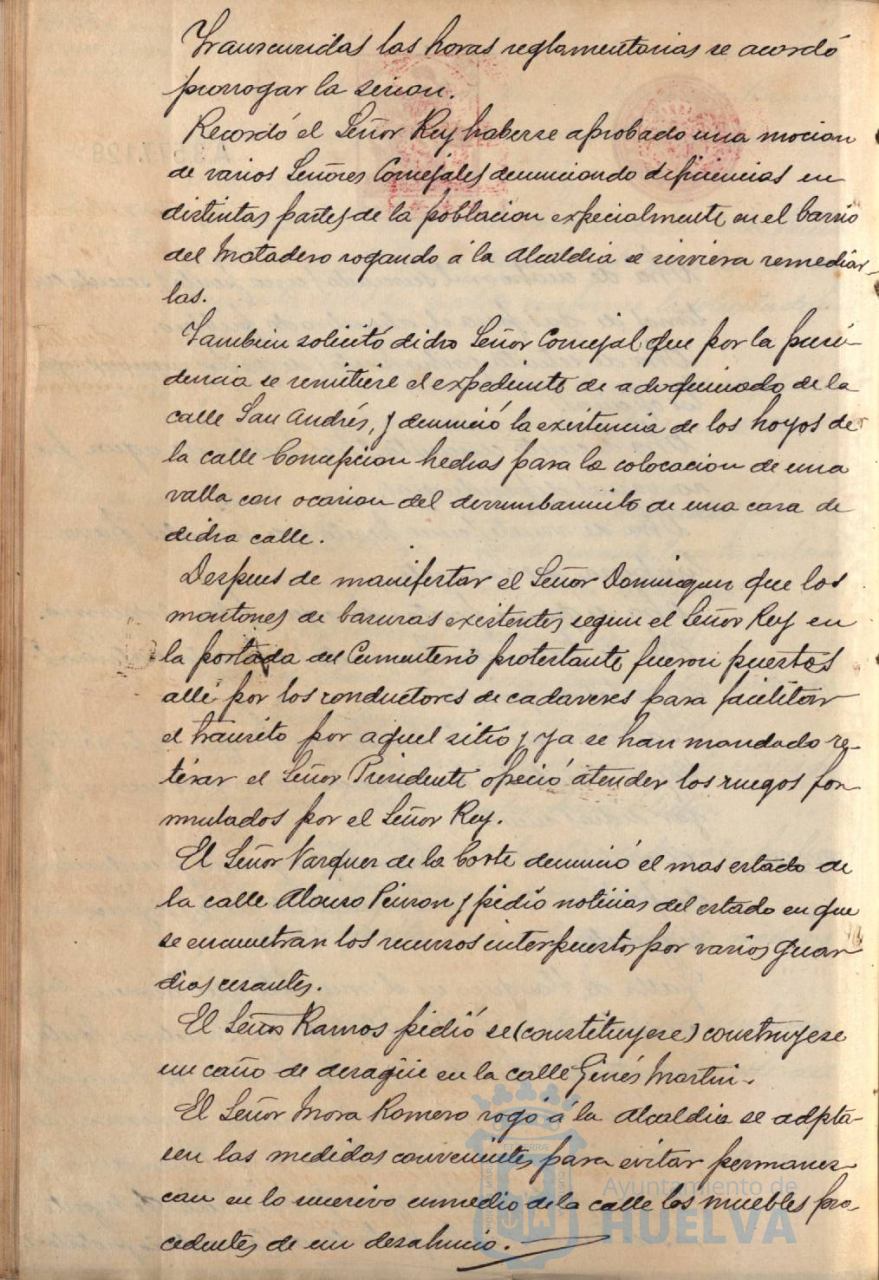 Transcurridas las horas reglamentarias se acordó
prorrogar la sesion.
Recordó el Señor Rey haberse aprobado una mocion
de varios Señores Concejales denunciando deficiencias en
distintas partes de la poblacion especialmente en el barrio
del Matadero rogando á la Alcaldia se sirviera remediar-
las.
Tambien solicitó dicho Señor Concejal que por la presi-
dencia se remitiese el expediente de adoquinado de la
calle San Andrés, y denunció la existencia de los hoyos de
la calle Concepcion hechos para la colocacion de una
valla con ocasion del derrumbamiento de una casa de
dicha calle.
Despues de manifestar el Señor Dominguez que los
montones de basuras existentes segun el Señor Rey en
la portada del Cementerio protestante, fueron puestos
alli por los conductores de cadaveres para facilitar
el tránsito por aquel sitio y ya se han mandado re-
tirar el Señor Presidente ofreció atender los ruegos for
mulados por el Señor Rey.
El Señor Vazquez de la Corte denunció el mas estado de
la calle Alonso Pinzon y pidió noticias del estado en que
se encuentran los recursos interpuestos por varios guar
dias cesantes.
El Señor Ramos pidió se (constituyese) construyese
un caño de desagüe en la calle Ginés Martin.
El Señor Mora Romero rogó á la Alcaldia se adpta-
sen las medidas convenientes para evitar permanez
can en lo sucesivo enmedio de la calle los muebles pro-
cedentes de un desahucio.
Ayuntamiento de
HUELVA